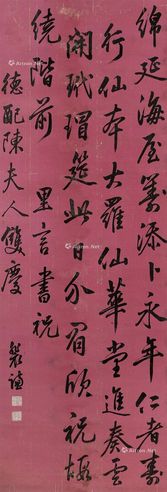 綿延海屋籌添卜永年仁者壽
行仙本大羅仙華堂進奏雲
開玳瑁筵此日介眉欣祝嘏
繞階前　里言書祝
德配陳夫人雙慶